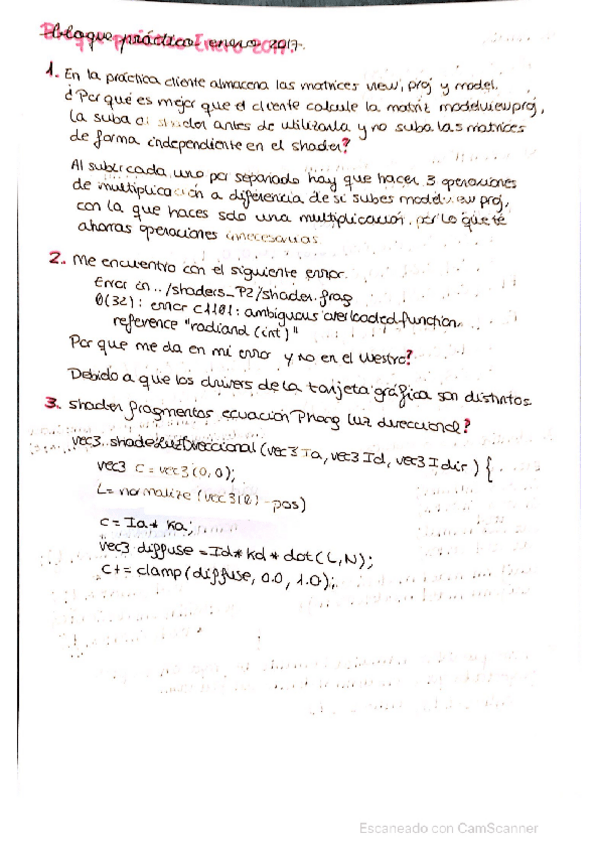 bloque práctico enero 2017.
1. En la práctica cliente almacena las matrices view, proj y model.
¿Por qué es mejor que el cliente calcule la matriz modelviewproj,
la suba al shader antes de utilizarla y no suba las matrices
de forma independiente en el shader?
Al subir cada uno por separado hay que hacer 3 operaciones
de multiplicación a diferencia de si subes modelview proj,
con la que haces solo una multiplicación, por lo que te
ahorras operaciones innecesarias.
2. Me encuentro con el siguiente error.
Error en ../shaders_P2/shader.frag
0(32): error C1101: ambiguous overloaded function
reference "radiand (int)"
Por que me da en mi error y no en el vuestro?
Debido a que los drivers de la tarjeta gráfica son distintos
3. shader fragmentos ecuación Phong luz direccional?
vec3 shadeLuzDireccional (vec3 Ia, vec3 Id, vec3 Idir) {
vec3 c = vec3(0,0);
L= normalize (vec3(0) - pos)
c= Ia * Ka;
vec3 diffuse = Id* Kd * dot(L,N);
c+= clamp(diffuse, 0.0, 1.0);
Escaneado con CamScanner